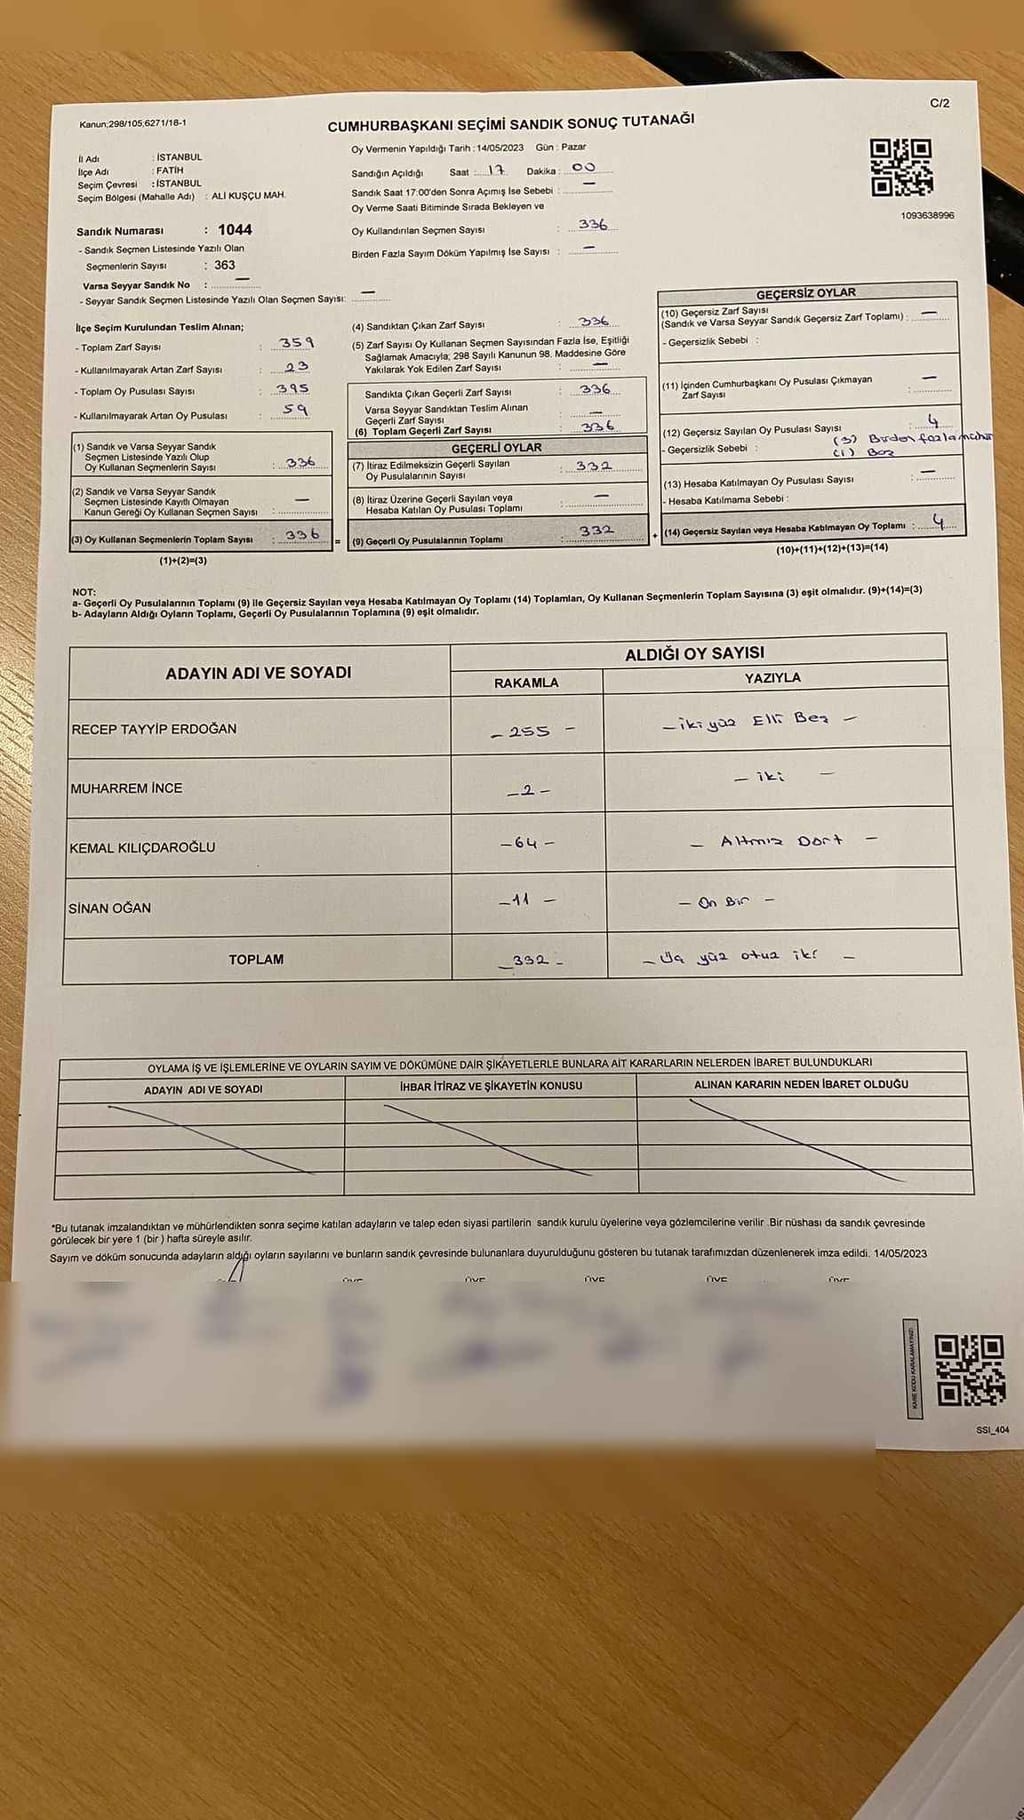 C/2
Kanun;298/105;6271/18-1
CUMHURBAŞKANI SEÇİMİ SANDIK SONUÇ TUTANAĞI
Oy Vermenin Yapıldığı Tarih : 14/05/2023 Gün : Pazar
İl Adı : İSTANBUL
İlçe Adı : FATİH
Seçim Çevresi : İSTANBUL
Seçim Bölgesi (Mahalle Adı) : ALİ KUŞÇU MAH.
Sandığın Açıldığı Saat : 17 Dakika : 00
Sandık Saat 17:00'den Sonra Açımış İse Sebebi : —
Oy Verme Saati Bitiminde Sırada Bekleyen ve
Oy Kullandırılan Seçmen Sayısı : 336
Birden Fazla Sayım Döküm Yapılmış İse Sayısı : —
1093638996
Sandık Numarası : 1044
- Sandık Seçmen Listesinde Yazılı Olan
Seçmenlerin Sayısı : 363
Varsa Seyyar Sandık No : —
- Seyyar Sandık Seçmen Listesinde Yazılı Olan Seçmen Sayısı: —
İlçe Seçim Kurulundan Teslim Alınan;
- Toplam Zarf Sayısı : 359
- Kullanılmayarak Artan Zarf Sayısı : 23
- Toplam Oy Pusulası Sayısı : 395
- Kullanılmayarak Artan Oy Pusulası : 59
(1) Sandık ve Varsa Seyyar Sandık
Seçmen Listesinde Yazılı Olup
Oy Kullanan Seçmenlerin Sayısı : 336
(2) Sandık ve Varsa Seyyar Sandık
Seçmen Listesinde Kayıtlı Olmayan
Kanun Gereği Oy Kullanan Seçmen Sayısı : —
(3) Oy Kullanan Seçmenlerin Toplam Sayısı : 336 =
(1)+(2)=(3)
(4) Sandıktan Çıkan Zarf Sayısı : 336
(5) Zarf Sayısı Oy Kullanan Seçmen Sayısından Fazla İse, Eşitliği
Sağlamak Amacıyla; 298 Sayılı Kanunun 98. Maddesine Göre
Yakılarak Yok Edilen Zarf Sayısı : —
Sandıkta Çıkan Geçerli Zarf Sayısı : 336
Varsa Seyyar Sandıktan Teslim Alınan
Geçerli Zarf Sayısı : —
(6) Toplam Geçerli Zarf Sayısı : 336
GEÇERLİ OYLAR
(7) İtiraz Edilmeksizin Geçerli Sayılan
Oy Pusulasının Sayısı : 332
(8) İtiraz Üzerine Geçerli Sayılan veya
Hesaba Katılan Oy Pusulası Toplamı : —
(9) Geçerli Oy Pusulalarının Toplamı : 332 +
GEÇERSİZ OYLAR
(10) Geçersiz Zarf Sayısı
(Sandık ve Varsa Seyyar Sandık Geçersiz Zarf Toplamı) : —
- Geçersizlik Sebebi :
(11) İçinden Cumhurbaşkanı Oy Pusulası Çıkmayan
Zarf Sayısı : —
(12) Geçersiz Sayılan Oy Pusulası Sayısı : 4
- Geçersizlik Sebebi : (3) Birden fazla mühür
(1) Boş
(13) Hesaba Katılmayan Oy Pusulası Sayısı : —
- Hesaba Katılmama Sebebi :
(14) Geçersiz Sayılan veya Hesaba Katılmayan Oy Toplamı : 4
(10)+(11)+(12)+(13)=(14)
NOT:
a- Geçerli Oy Pusulalarının Toplamı (9) ile Geçersiz Sayılan veya Hesaba Katılmayan Oy Toplamı (14) Toplamları, Oy Kullanan Seçmenlerin Toplam Sayısına (3) eşit olmalıdır. (9)+(14)=(3)
b- Adayların Aldığı Oyların Toplamı, Geçerli Oy Pusulalarının Toplamına (9) eşit olmalıdır.
ADAYIN ADI VE SOYADI
ALDIĞI OY SAYISI
RAKAMLA YAZIYLA
RECEP TAYYİP ERDOĞAN - 255 - - iki yüz Elli Beş -
MUHARREM İNCE - 2 - - iki -
KEMAL KILIÇDAROĞLU - 64 - - Altmış Dört -
SİNAN OĞAN - 11 - - On Bir -
TOPLAM - 332 - - Üç yüz otuz iki -
OYLAMA İŞ VE İŞLEMLERİNE VE OYLARIN SAYIM VE DÖKÜMÜNE DAİR ŞİKAYETLERLE BUNLARA AİT KARARLARIN NELERDEN İBARET BULUNDUKLARI
ADAYIN ADI VE SOYADI İHBAR İTİRAZ VE ŞİKAYETİN KONUSU ALINAN KARARIN NEDEN İBARET OLDUĞU
*Bu tutanak imzalandıktan ve mühürlendikten sonra seçime katılan adayların ve talep eden siyasi partilerin sandık kurulu üyelerine veya gözlemcilerine verilir .Bir nüshası da sandık çevresinde
görülecek bir yere 1 (bir ) hafta süreyle asılır.
Sayım ve döküm sonucunda adayların aldığı oyların sayılarını ve bunların sandık çevresinde bulunanlara duyurulduğunu gösteren bu tutanak tarafımızdan düzenlenerek imza edildi. 14/05/2023
ÜYE ÜYE ÜYE ÜYE ÜYE
KARE KODU KARALAMAYINIZ!
SSI_404